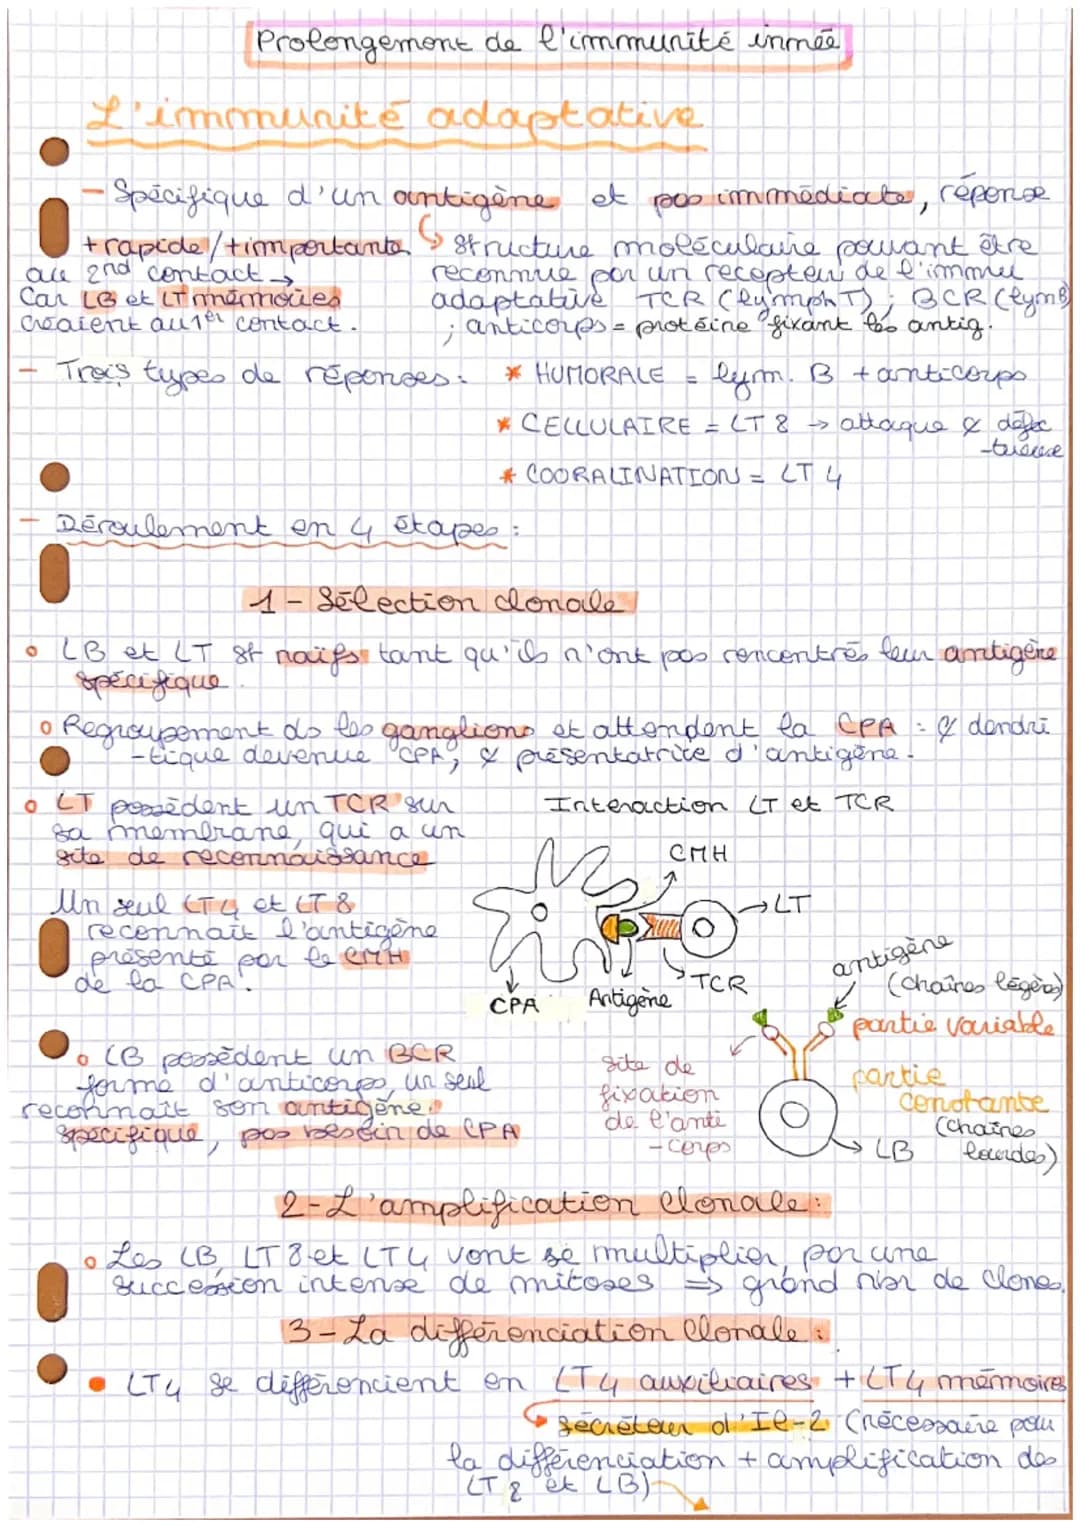 Prolongement de l'immunité innée
L'immunité adaptative
- Spécifique d'un antigène et pas immédiate, réponse
+ rapide / + importante
au 2nd contact →
Car LB et LT mémoires
créaient au 1er contact.
↳ structure moléculaire pouvant être
reconnue par un recepteur de l'immu
adaptative TCR (lymph T) ; BCR (lym B)
; anticorps = protéine fixant les antig.
- Trois types de réponses : * HUMORALE = lym. B + anticorps
* CELLULAIRE = LT 8 → attaque & défec
-tueuse
* COORALINATION = LT 4
- Déroulement en 4 étapes :
1 - Sélection clonale
LB et LT st naïfs tant qu'ils n'ont pas rencontrés leur antigène
spécifique.
Regroupement ds les ganglions et attendent la CPA : & dendri
-tique devenue CPA, & présentatrice d'antigène.
LT possèdent un TCR sur
sa membrane, qui a un
site de reconnaissance
Un seul LT4 et LT8
reconnaît l'antigène
présenté par le CMH
de la CPA.
Interaction LT et TCR
CMH
LT
TCR
Antigène
CPA
LB possèdent un BCR
forme d'anticorps, un seul
reconnaît son antigène
spécifique, pas besoin de CPA
antigène
(chaînes légères)
partie variable
partie
constante
(chaînes
lourdes)
site de
fixation
de l'anti
-corps
LB
2 - L'amplification clonale :
Les LB, LT8 et LT4 vont se multiplier, par une
succession intense de mitoses ⇒ grand nbr de clones.
3 - La différenciation clonale :
LT4 se différencient en LT4 auxiliaires + LT4 mémoires
↳ sécréteur d'Il-2 (nécessaire pour
la différenciation + amplification des
LT8 et LB)